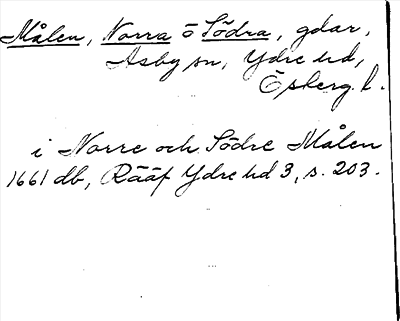 Målen, Norra o Södra, gdar,
Asby sn, Ydre hd,
Ösberg. l.
i Norre och Södre Målen
1661 db, Rääf Ydre hd 3, s. 203.